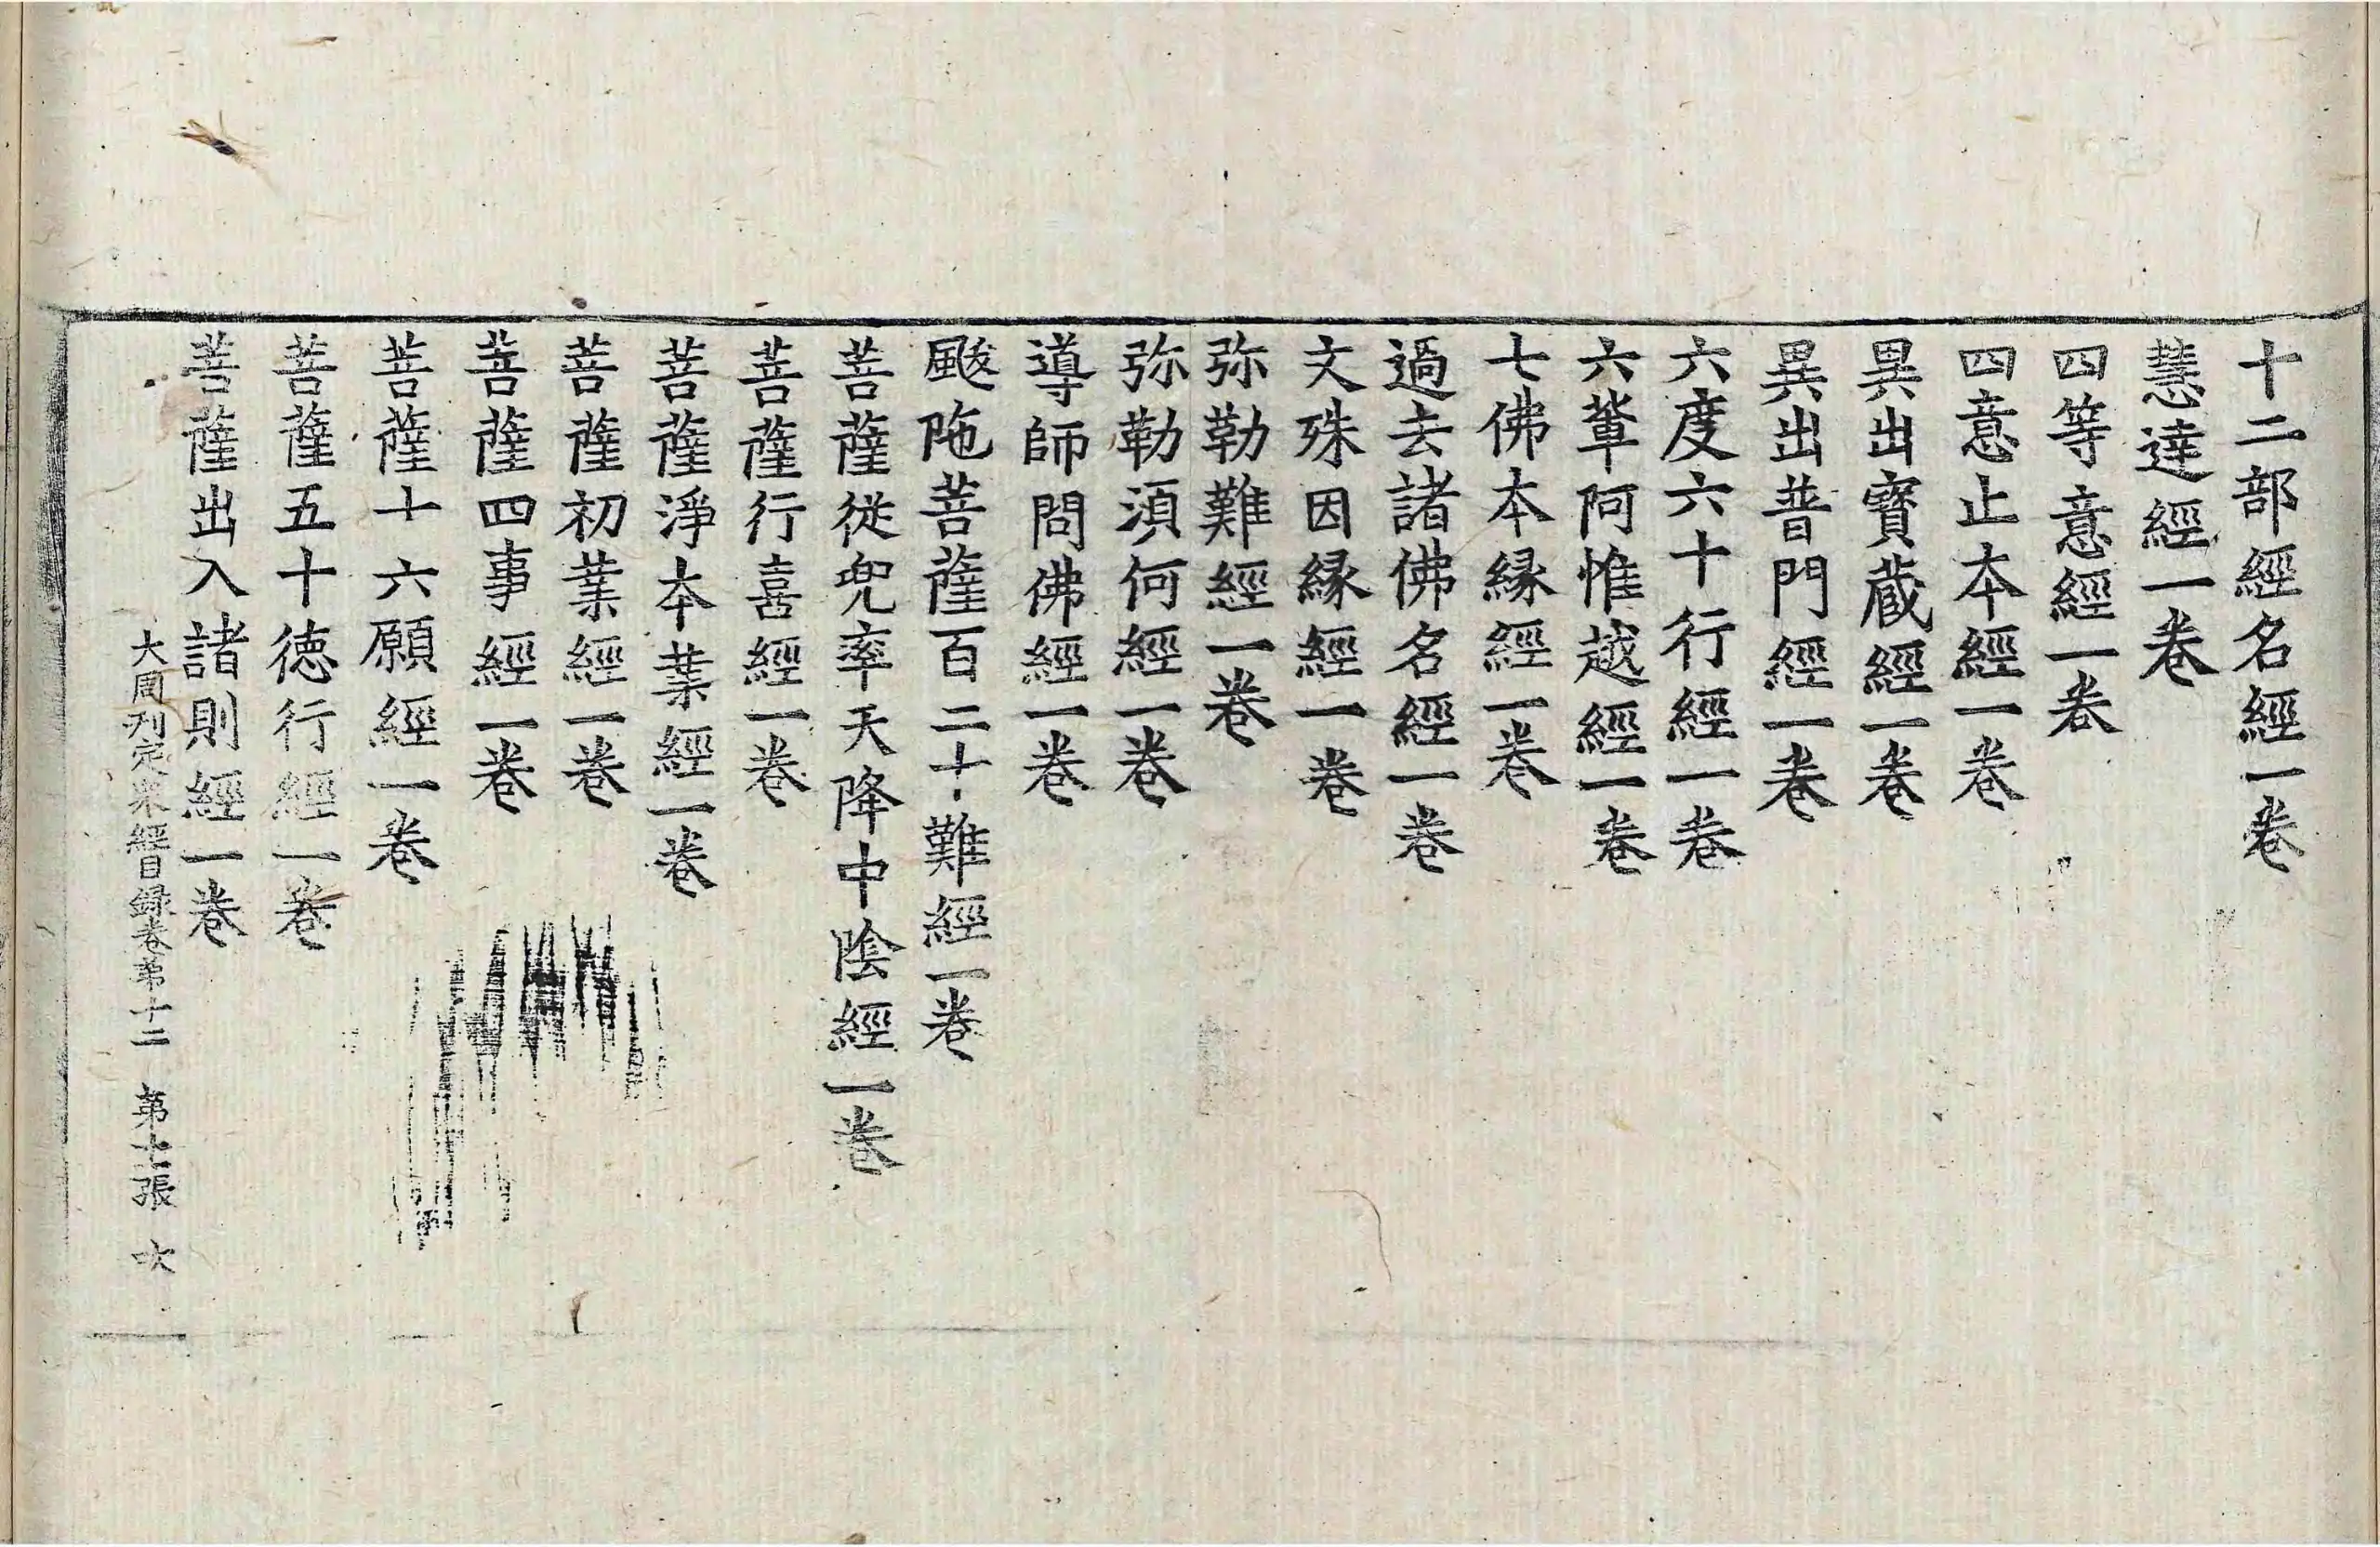 十二部經名經一卷
慧達經一卷
四等意經一卷
四意止本經一卷
異出寶蔵經一卷
異出普門經一卷
六度六十行經一卷
六輩阿惟越經一卷
七佛本縁經一卷
過去諸佛名經一卷
文殊因縁經一卷
弥勒難經一卷
弥勒湏何經一卷
導師問佛經一卷
颰陁菩薩百二十難經一卷
菩薩從兜率天降中陰經一卷
菩薩行喜經一卷
菩薩淨本業經一卷
菩薩初業經一卷
菩薩四事經一卷
菩薩十六願經一卷
菩薩五十徳行經一卷
菩薩出入諸則經一卷
大周刋定眾經目録卷第十二 第七張 次